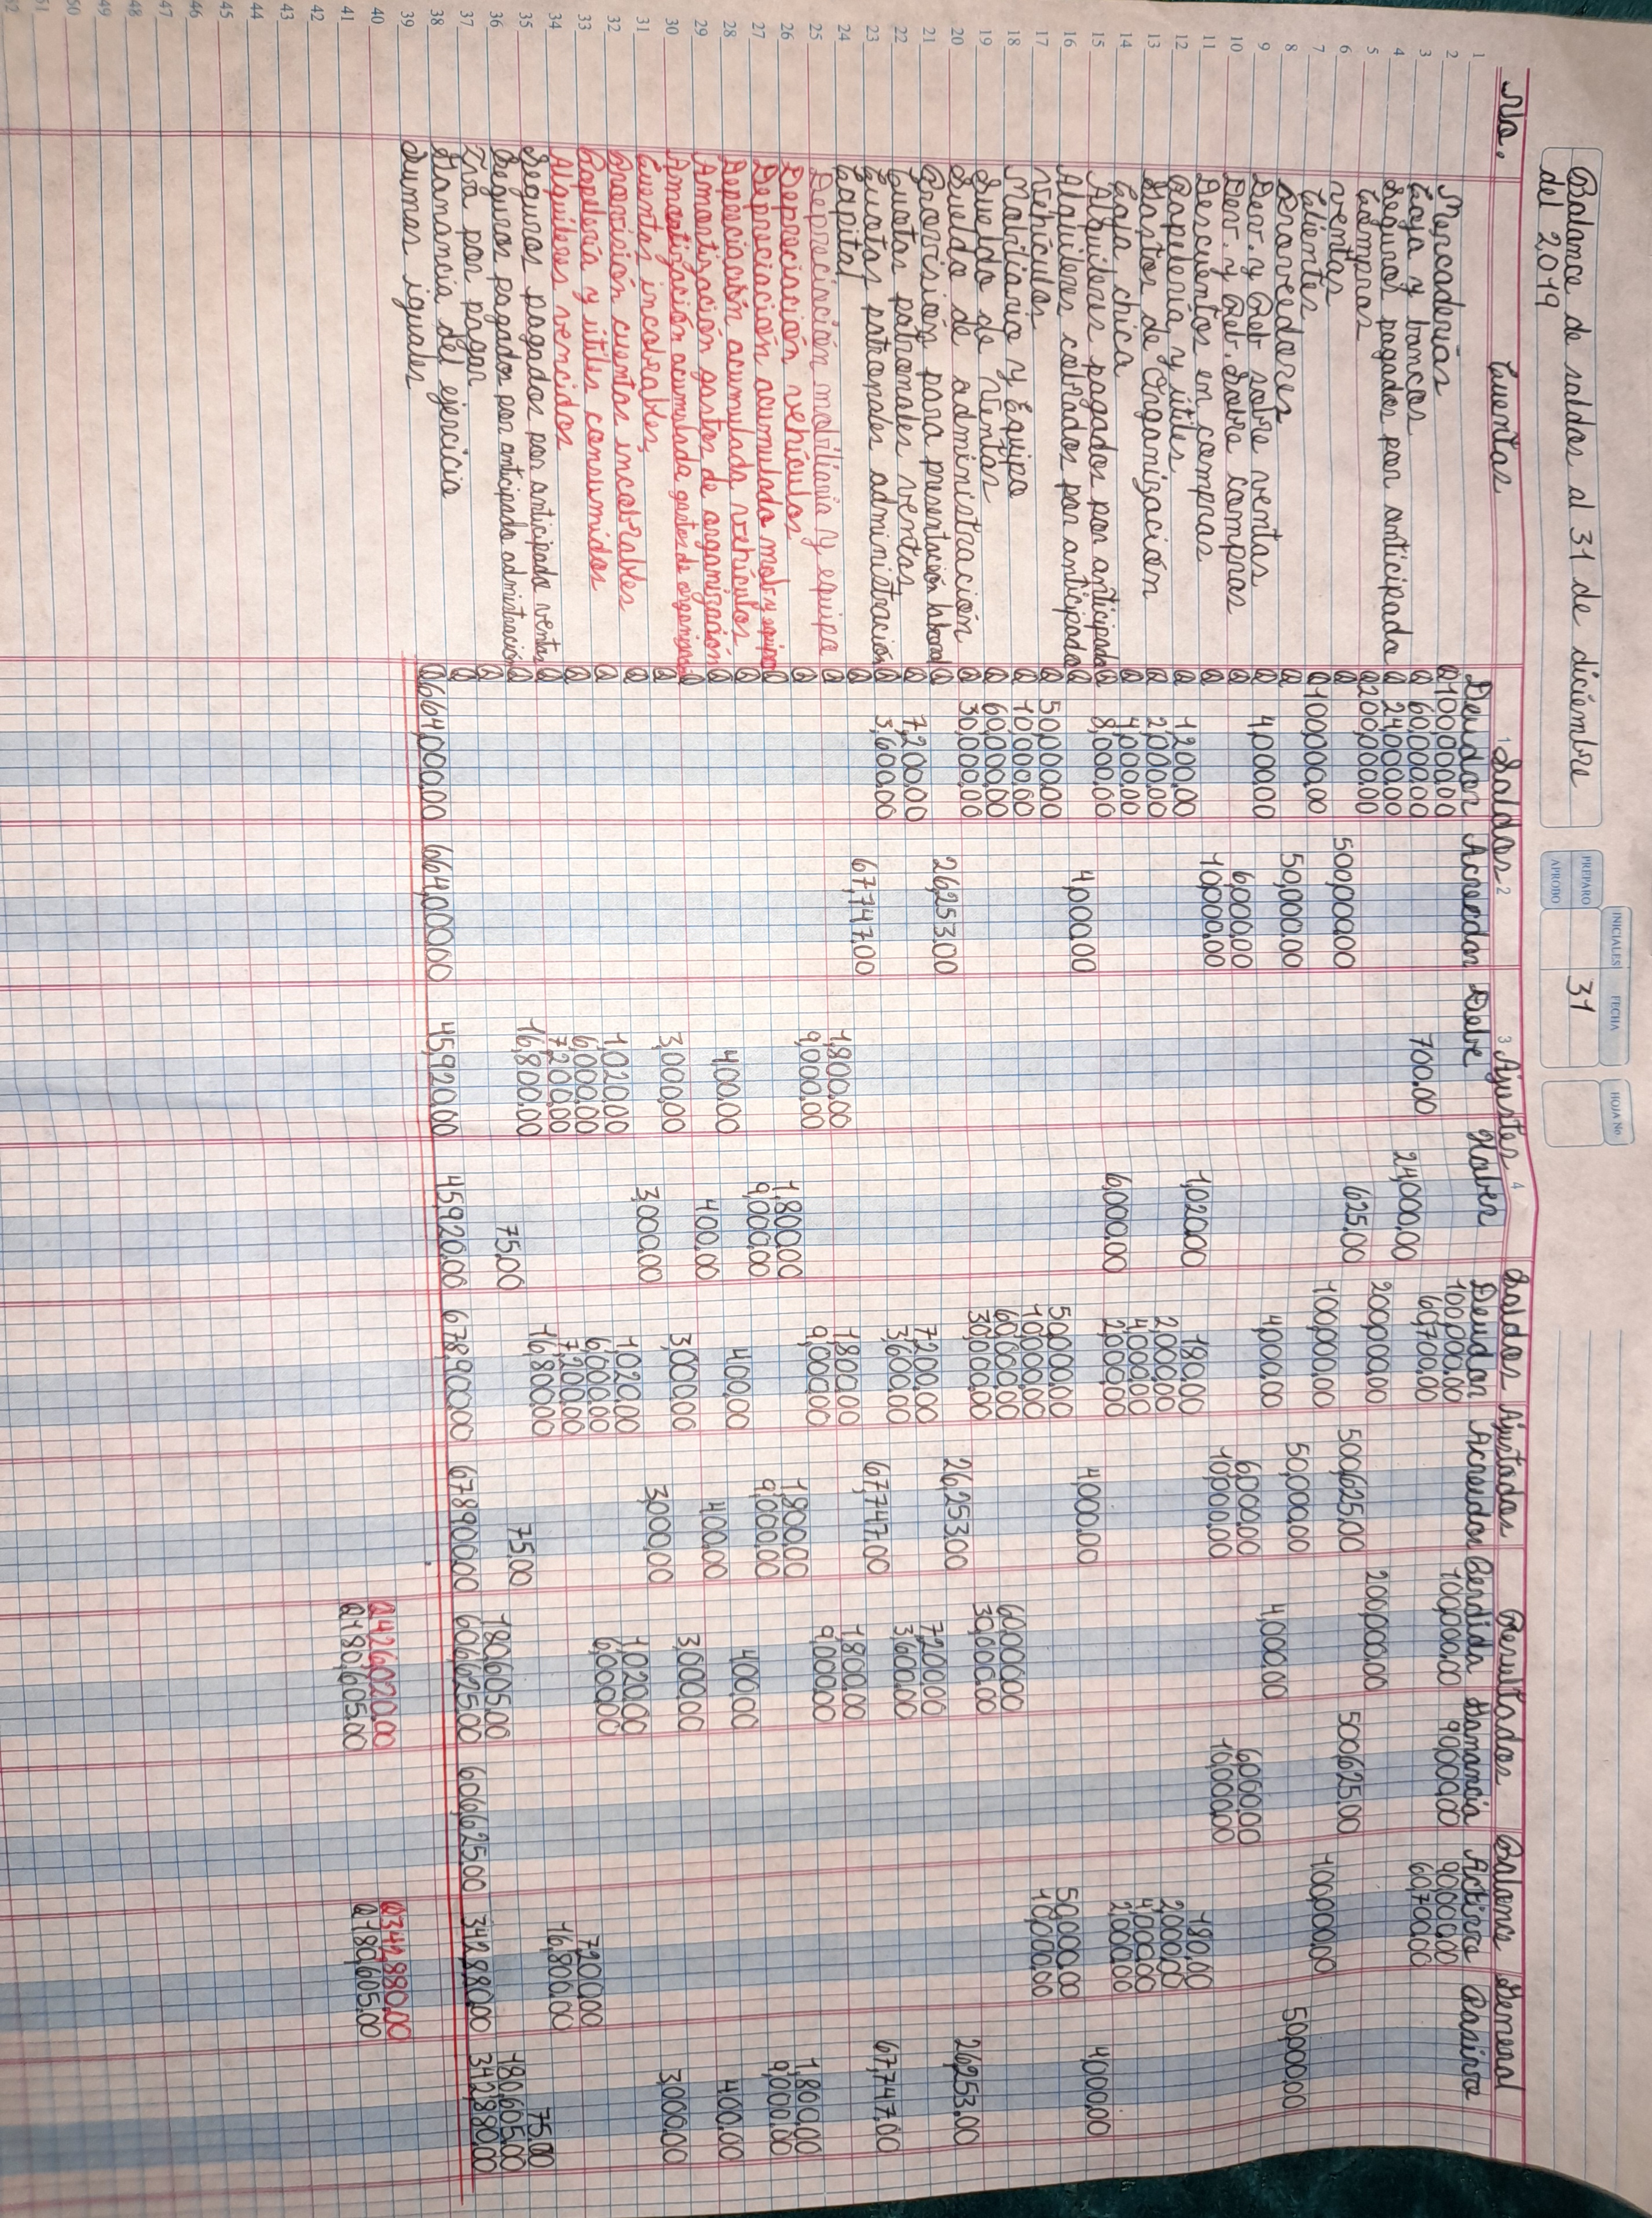 Balance de saldos al 31 de diciembre
del 2,019
PREPARO
APROBO
INICIALES
FECHA
HOJA No
31
1 2 3 4
No. Cuentas Saldos Ajustes Saldos Ajustados Resultados Balance General
Deudor Acreedor Debe Haber Deudor Acreedor Perdida Ganancia Activo Pasivo
1
2 Mercaderías Q100,000.00 100,000.00 100,000.00 90,000.00 90,000.00
3 Caja y bancos Q 60,000.00 700.00 60,700.00 60,700.00
4 Seguros pagados por anticipado Q 24,000.00 24,000.00
5 Compras Q200,000.00 200,000.00 200,000.00
6 Ventas Q 500,000.00 625.00 500,625.00 500,625.00
7 Clientes Q100,000.00 100,000.00 100,000.00
8 Proveedores Q 50,000.00 50,000.00 50,000.00
9 Dev. y Reb sobre ventas Q 4,000.00 4,000.00 4,000.00
10 Dev. y Reb. Sobre compras Q 6,000.00 6,000.00 6,000.00
11 Descuentos en compras Q 10,000.00 10,000.00 10,000.00
12 Papelería y útiles Q 1,200.00 1,020.00 180.00 180.00
13 Gastos de Organización Q 2,000.00 2,000.00 2,000.00
14 Caja chica Q 4,000.00 4,000.00 4,000.00
15 Alquileres pagados por anticipado Q 8,000.00 6,000.00 2,000.00 2,000.00
16 Alquileres cobrados por anticipado Q 4,000.00 4,000.00 4,000.00
17 Vehículos Q 50,000.00 50,000.00 50,000.00
18 Mobiliario y Equipo Q 10,000.00 10,000.00 10,000.00
19 Sueldo de Ventas Q 60,000.00 60,000.00 60,000.00
20 Sueldo de administración Q 30,000.00 30,000.00 30,000.00
21 Provisión para presentación laboral Q 26,253.00 26,253.00 26,253.00
22 Cuotas patronales ventas Q 7,200.00 7,200.00 7,200.00
23 Cuotas patronales administración Q 3,600.00 3,600.00 3,600.00
24 Capital Q 67,747.00 67,747.00 67,747.00
25 Depreciación mobiliario y equipo Q 1,800.00 1,800.00 1,800.00
26 Depreciación vehículos Q 9,000.00 9,000.00 9,000.00
27 Depreciación acumulada mob y equipo Q 1,800.00 1,800.00 1,800.00
28 Depreciación acumulada vehículos Q 9,000.00 9,000.00 9,000.00
29 Amortización gastos de organización Q 400.00 400.00 400.00
30 Amortización acumulada gastos de organización Q 400.00 400.00 400.00
31 Cuentas incobrables Q 3,000.00 3,000.00 3,000.00
32 Provisión cuentas incobrables Q 3,000.00 3,000.00 3,000.00
33 Papelería y útiles consumidos Q 1,020.00 1,020.00 1,020.00
34 Alquileres vencidos Q 6,000.00 6,000.00 6,000.00
35 Seguros pagados por anticipado ventas Q 7,200.00 7,200.00 7,200.00
36 Seguros pagados por anticipado administración Q 16,800.00 16,800.00 16,800.00
37 Iva por pagar Q 75.00 75.00 75.00
38 Ganancia del ejercicio Q 180,605.00 180,605.00
39 Sumas iguales Q664,000.00 664,000.00 45,920.00 45,920.00 678,900.00 678,900.00 606,625.00 606,625.00 342,880.00 342,880.00
40 Q426,020.00 Q342,880.00
41 Q180,605.00 Q180,605.00
42
43
44
45
46
47
48
49
50
51
52